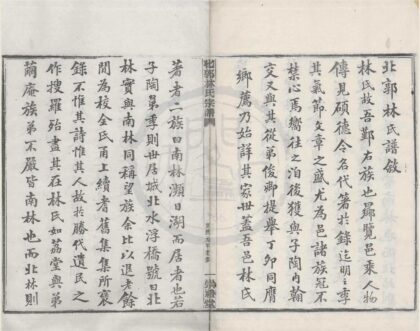 北郭林氏譜敘
林氏故吾鄞右族也歸覽邑乘人物
傳見碩德令名代著於錄迨明之季
其氣節文章之盛尤為邑諸族冠不
禁心焉嚮往之泊後獲與子陶內翰
交又與其從弟俊卿提舉丁卯同膺
鄉薦乃始詳其家世蓋吾邑林氏
北郭林氏宗譜
崇禮堂
著者二族曰南林瀕日湖而居者也若
子陶昆季則世居城北水浮橋號曰北
林實與南林同稱望族余比以退老餘
閒為校全氏甬上續耆舊集集所裒
錄不惟其詩惟其人故於勝代遺民之
作搜羅殆盡其在林氏如荔堂與弟
繭庵族弟不嚴皆南林也而北林則